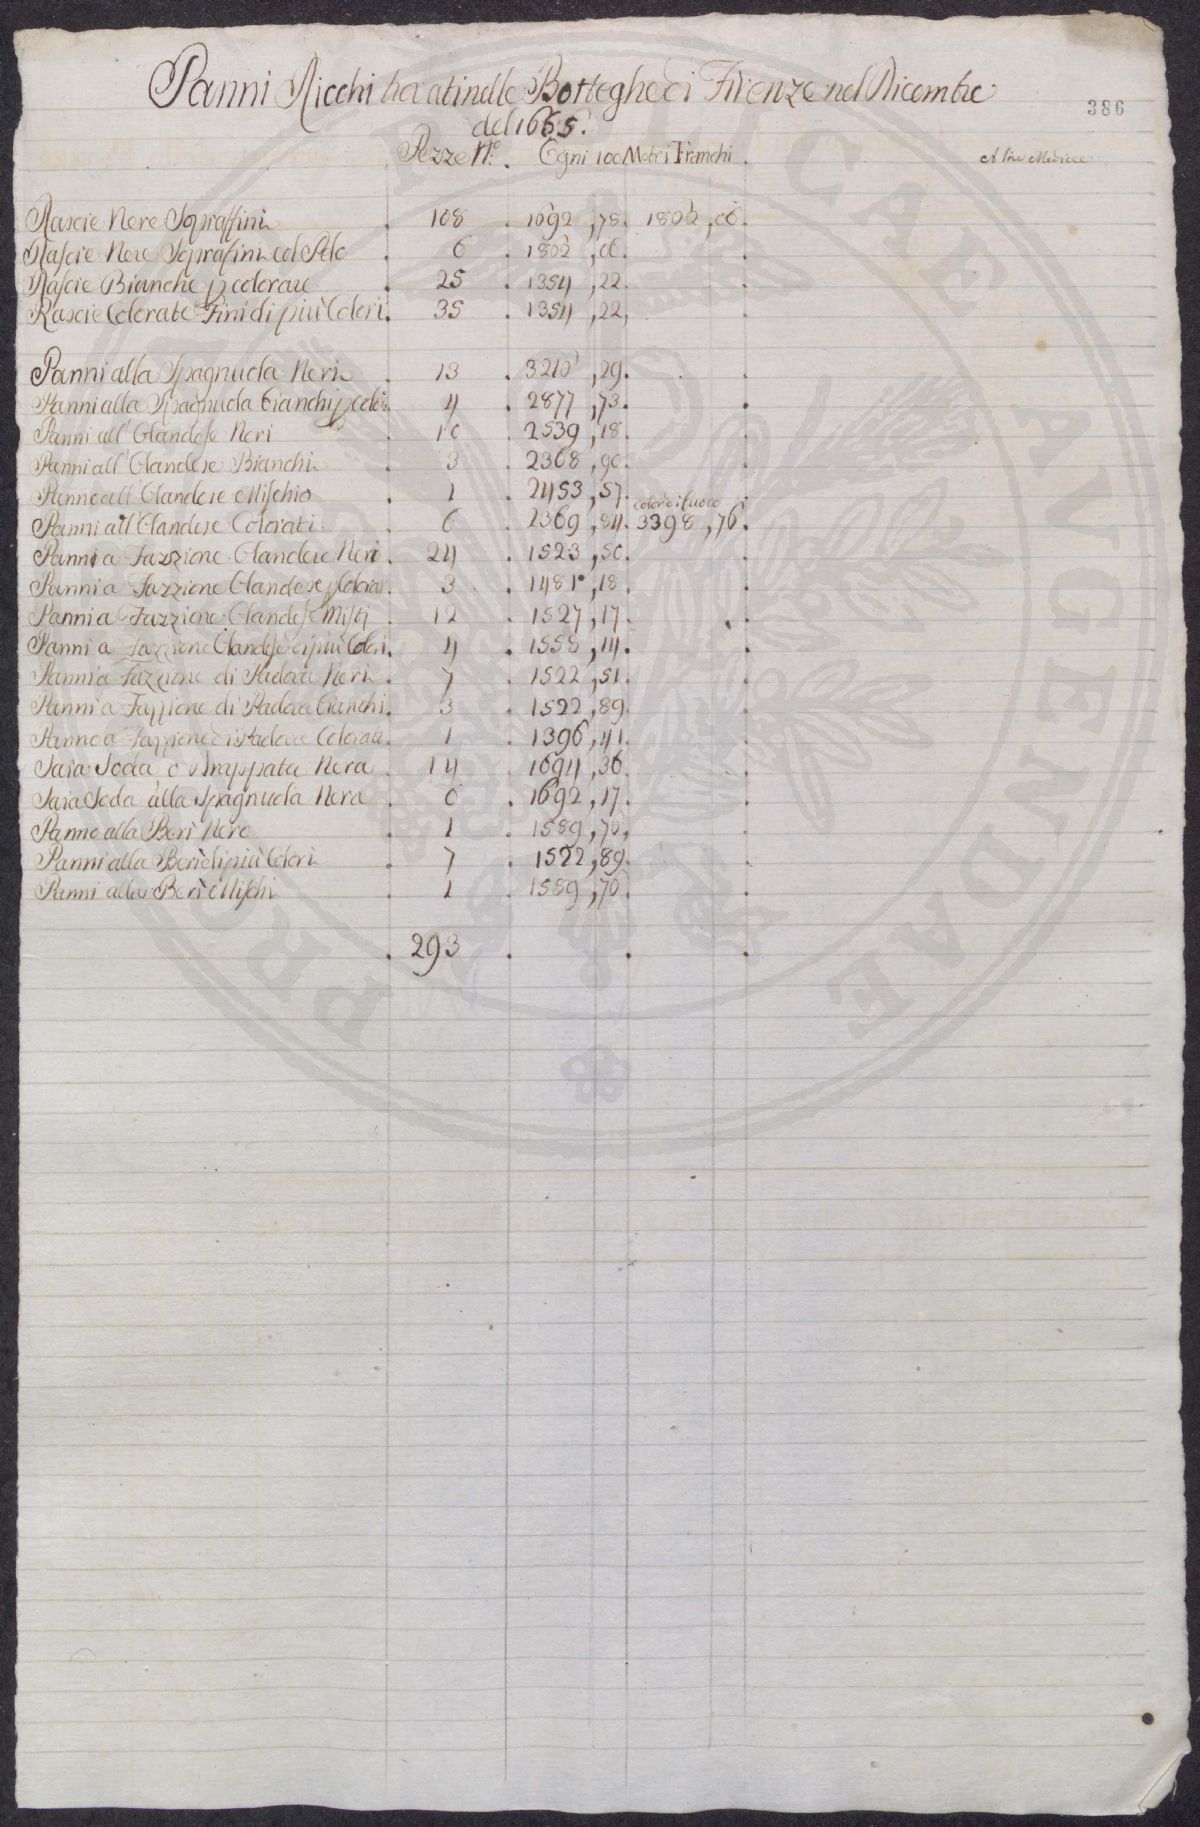 Panni Ricchi trovati nelle Botteghe di Firenze nel Dicembre
del 1665.
386
Pezze N.º Ogni 100 Metri Franchi. Altre Medicee
Rascie Nere Sopraffini . 108 . 1692 ,78. 1802 ,06.
Rascie Nere Soprafini col Pelo . 6 . 1802 ,06.
Rascie Bianche p colorare . 25 . 1354 ,22.
Rascie Colorate Fini di più Colori. 35 . 1354 ,22,
Panni alla Spagnuola Neri . 13 . 3210 ,29.
Panni alla Spagnuola bianchi p color. 4 . 2877 ,73.
Panni all' Olandese Neri . 10 . 2539 ,18.
Panni all' Olandese Bianchi . 3 . 2368 ,90.
Panno all' Olandese Mischio . 1 . 2453 ,57.
color di fuoco
Panni all' Olandese Colorati . 6 . 2369 ,84. 3398 ,76.
Panni a Fazzione Olandese Neri . 24 . 1523 ,50.
Panni a Fazzione Olandese p Colorar. 3 . 1481 ,18.
Panni a Fazzione Olandese Misti . 12 . 1527 ,17.
Panni a Fazzione Olandese di più Colori. 4 . 1558 ,14.
Panni a Fazzione di Padova Neri . 7 . 1522 ,51.
Panni a Fazzione di Padova bianchi. 3 . 1522 ,89.
Panno a Fazzione di Padova Colorato. 1 . 1396 ,41.
Saia Soda o Drappata Nera . 14 . 1694 ,36.
Saia Soda alla Spagnuola Nera . 6 . 1692 ,17.
Panno alla Berì Nero . 1 . 1589 ,70,
Panni alla Berì di più Colori . 7 . 1522 ,89.
Panni alla Berì Mischi . 1 . 1589 ,70.
. 293 . . .